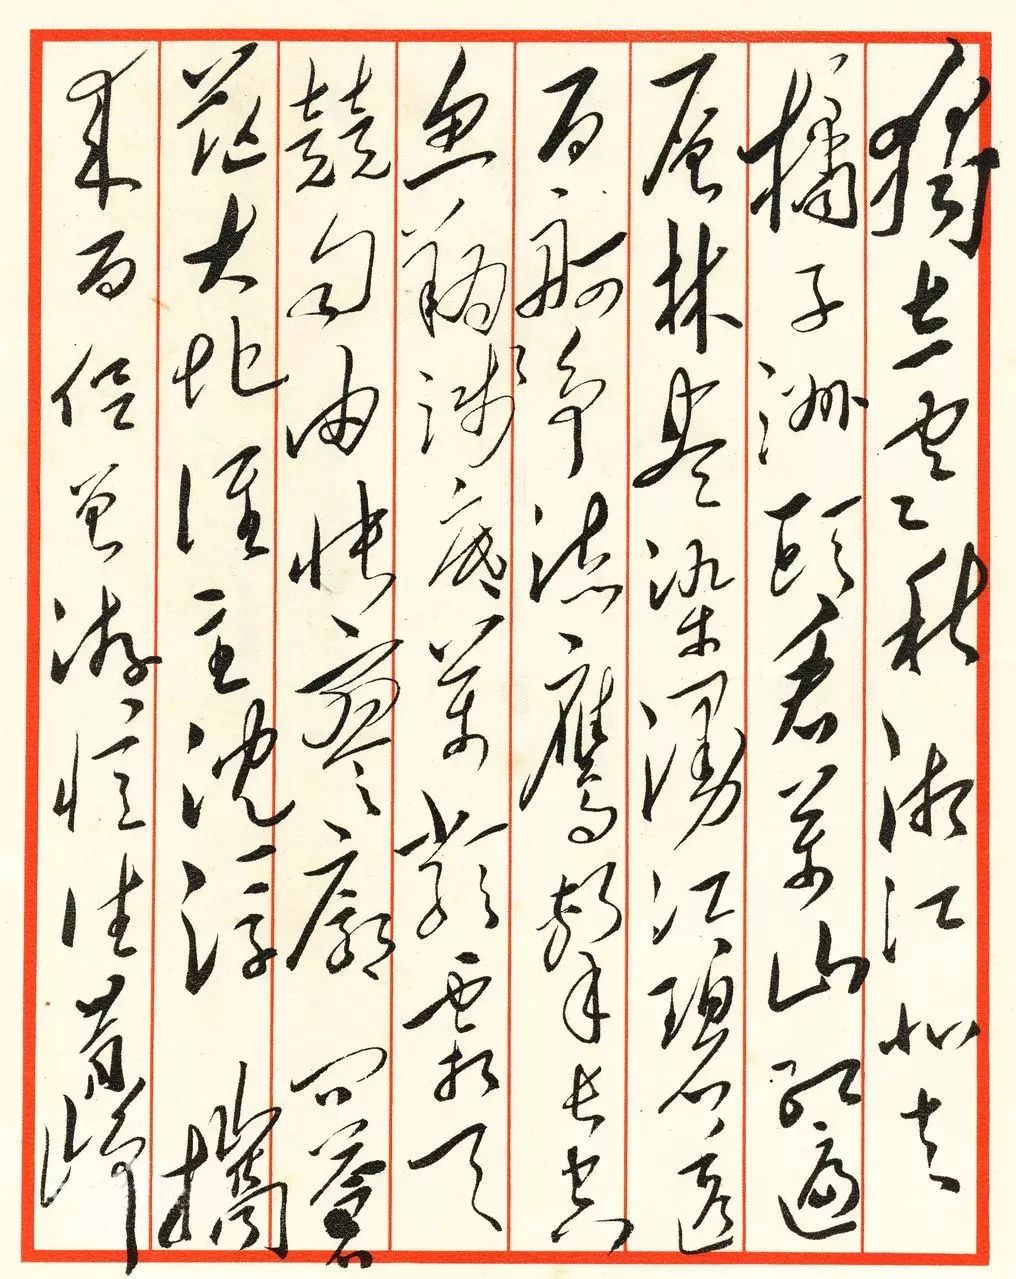 獨立寒秋湘江北去
橘子洲頭看萬山紅遍
層林盡染漫江碧透
百舸爭流鷹擊長空
魚翔淺底萬類霜天
競自由悵寥廓問蒼
茫大地誰主沈浮 攜
來百侶曾游憶往昔崢